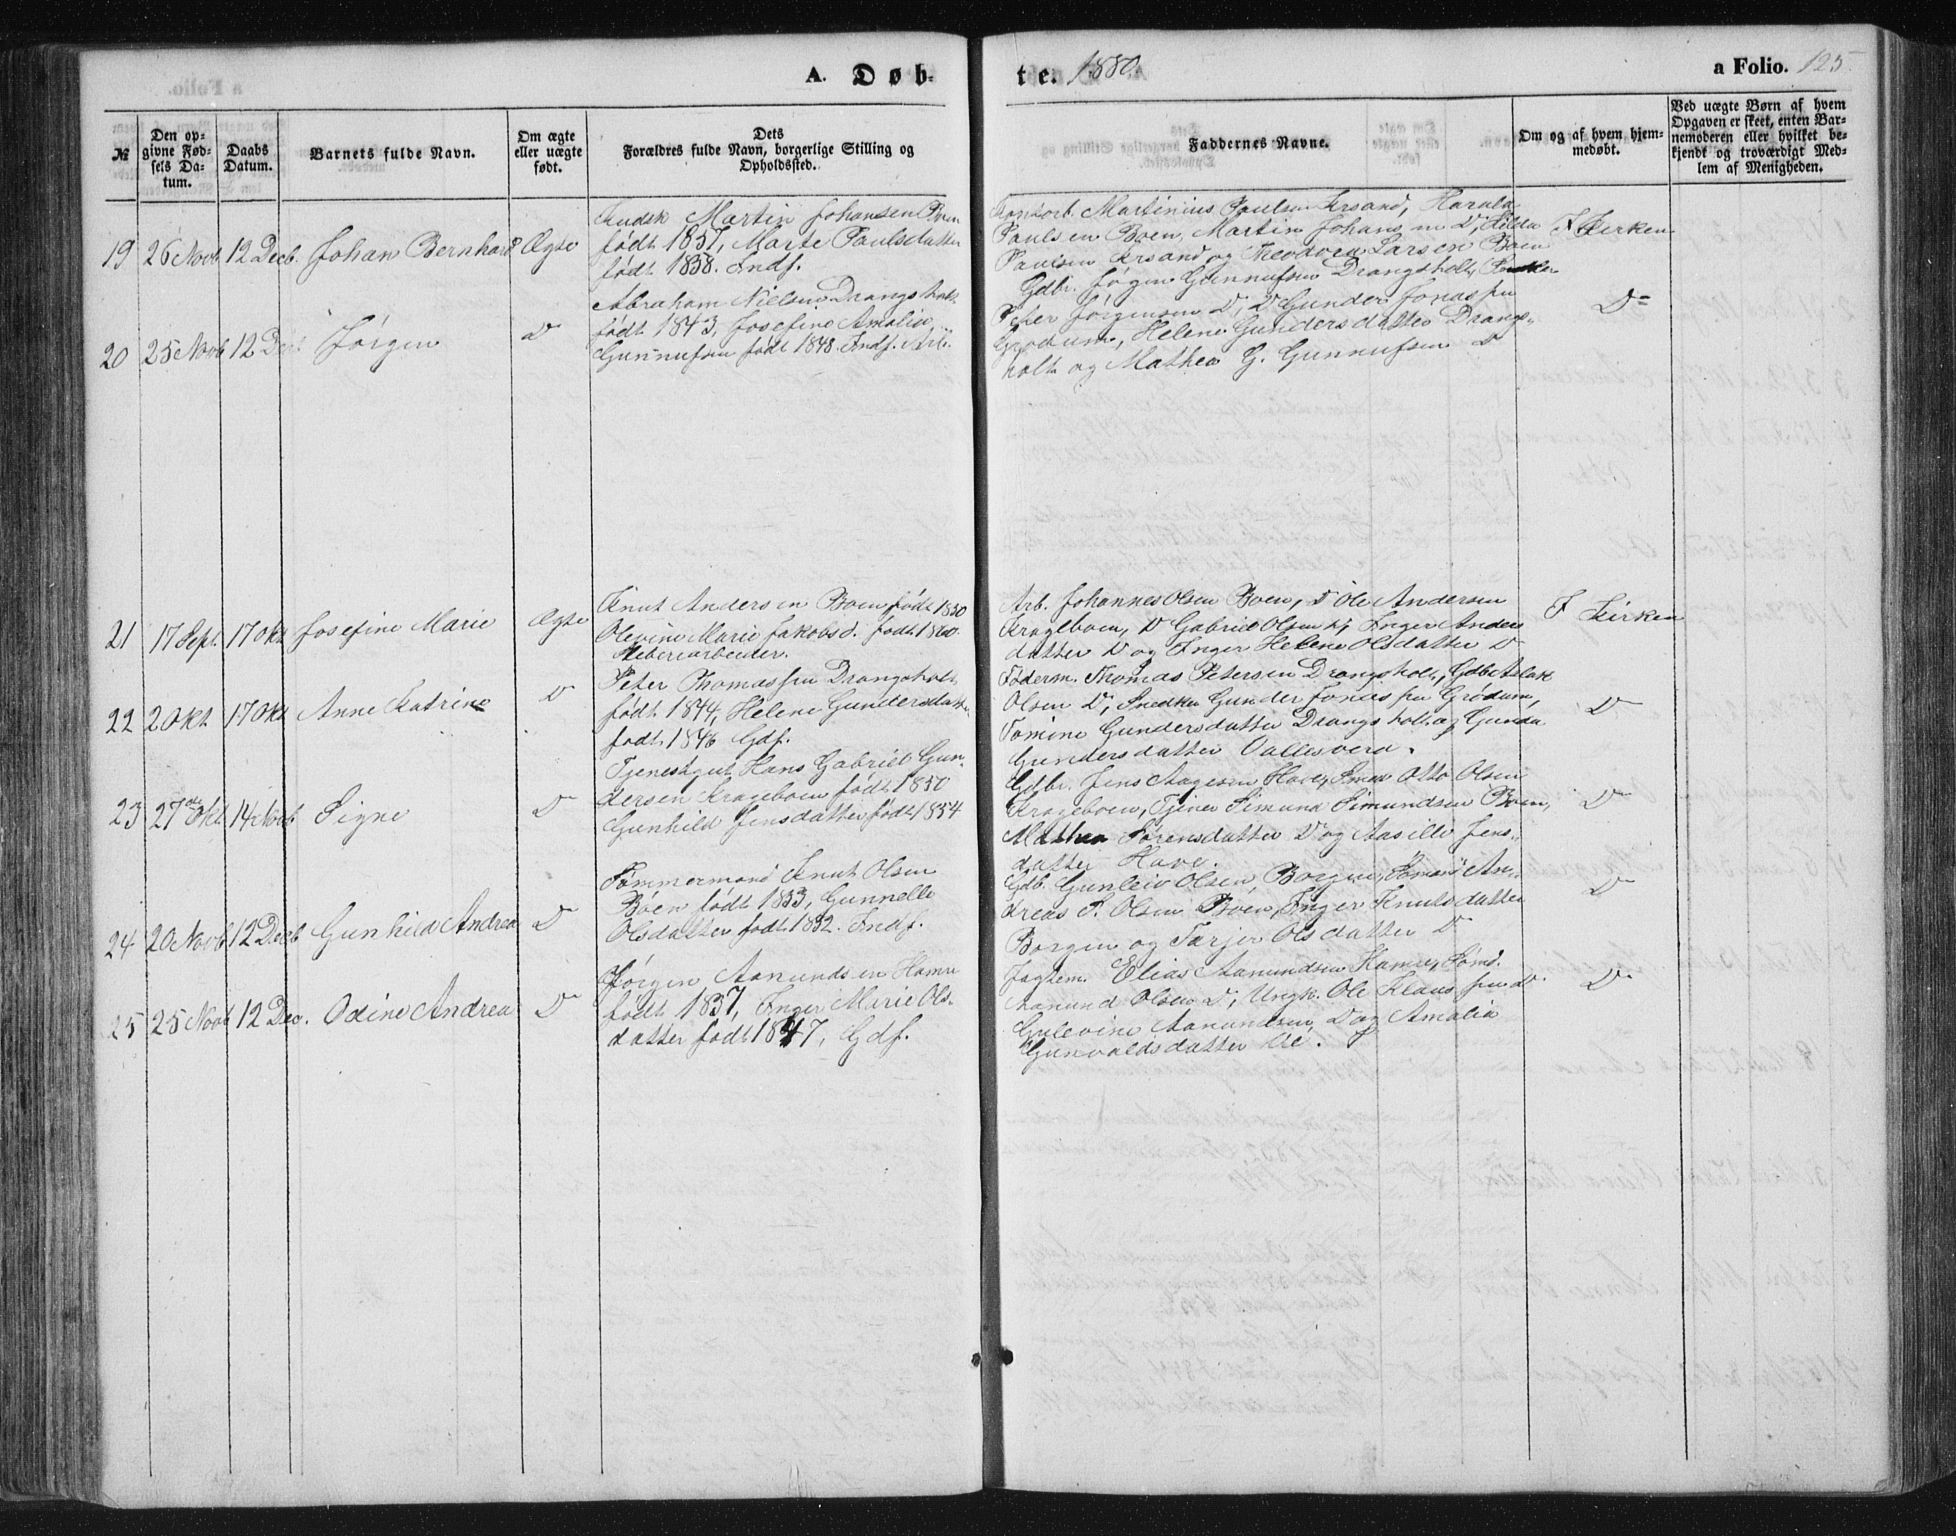 A. Døb-
te. 1880
a Folio. 125
№
Den op-
givne Fød-
sels Da-
tum.
Daabs
Datum.
Barnets fulde Navn.
Om ægte
eller uægte
født.
Dets
Forældres fulde Navn, borgerlige Stilling og
Opholdssted.
Faddernes Navne.
Om og af hvem hjem-
medøbt.
Ved uægte Børn af hvem
Opgaven er skeet, enten Bar-
nemoderen eller hvilket be-
kjendt og troværdigt Med-
lem af Menigheden.
19 26 Novb 12 Decb. Johan Bernhard Ægte
Kudsk Martin Johansen Boen
født 1857, Marte Paulsdatter
født 1858. Indf.
Kontorb. Martinius Paulsen Krsand, Harald
Paulsen Boen, Martin Johansen D°, Hilda
Paulsen Krsand og Theodora Larsen Boen
I Kirken
20 25 Novb 12 Decb Jørgen D°
Abraham Nielsen Drangsholt
født 1843, Josefine Amalie
Gunnufsen født 1848. Indf. Arb.
Gdbr. Jørgen Gunnufsen Drangsholt,
Peter Jørgensen D°, D° Gunder Jonassen
Grødum, Helene Gundersdatter Drangs-
holt og Mathea G. Gunnufsen D°
D°
21 17 Sept. 17 Okt Josefine Marie Ægte
Knut Andersen Boen født 1850
Olevine Marie Jakobsd. født 1860.
Meieriarbeider.
Arb. Johannes Olsen Boen, D° Ole Andersen
Krageboen, D° Gabriel Olsen D°, Inger Anders
datter D° og Inger Helene Olsdatter D°
I Kirken
22 2 Okt 17 Okt Anne Katrine D°
Peter Thomassen Drangsholt
født 1844, Helene Gundersdatter
født 1846 Gdf.
Føderm. Thomas Petersen Drangsholt, Gdbr Aslak
Olsen D°, Snedker Gunder Jonassen Grødum,
Tomine Gundersdatter Drangsholt og Gunda
Gundersdatter Vallesverd.
D°
23 27de Okt. 14 Novb Signe D°
Tjenestgut Hans Gabriel Gun-
dersen Krageboen født 1850
Gunhild Jensdatter født 1854
Gdbr. Jens Aagesen Have, Smed Otto Olsen
Krageboen, Tjener Simund Simundsen Boen,
Mathea Sørensdatter D° og Aasille Jens-
datter Have.
D°
24 20 Novb 12 Decb Gunhild Andrea D°
Tømmermand Knut Olsen
Boen født 1833, Gunnelle
Olsdatter født 1832. Indf.
Gdb. Gunleiv Olsen Borgen, Tømmd An-
dreas P. Olsen Boen, Inger Knutsdatter
Borgen og Tarjer Olsdatter D°
D°
25 25 Novb 12 Dec. Odine Andrea D°
Jørgen Aanundsen Hamre
født 1837, Inger Marie Ols-
datter født 1847, Gdf.
Elias Aanundsen Hamre, Tømd.
Aanund Olsen D°, Ungk. Ole Klaussen D°
Gulevine Aanundsen D° og Amalia
Gunvaldsdatter
D°